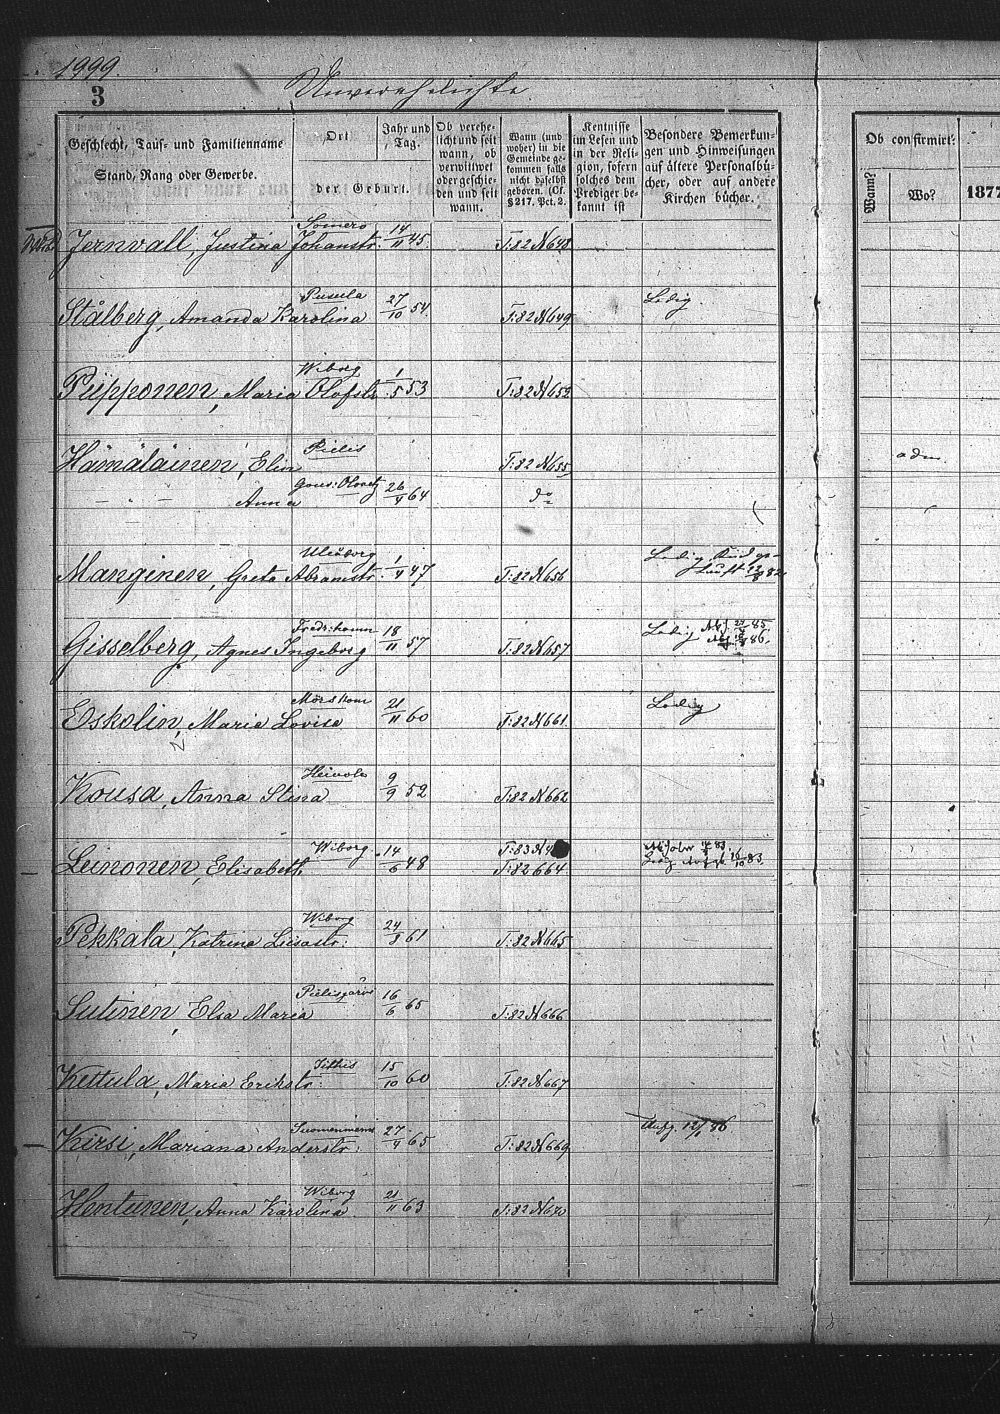 1999.
3
Unverehelichte
Geschlecht, Tauf- und Familienname
Stand, Rang oder Gewerbe.
Ort
der Geburt.
Jahr und Tag.
Ob verehelicht und seit wann, ob verwittwet oder geschieden und seit wann.
Wann (und woher) in die Gemeinde gekommen falls nicht daselbst geboren. (Cf. § 217. Pct. 2.
Kentnisse im Lesen und in der Religion, sofern solches dem Prediger bekannt ist
Besondere Bemerkungen und Hinweisungen auf ältere Personalbücher, oder auf andere Kirchen bücher.
Ob confirmirt:
Wann?
Wo?
1877
Jernvall, Justina Johanstr. Somero 14/11 45 T:82 N648
Stålberg, Amanda Karolina Pusula 27/10 54. T:82 N649 Ledig.
Piipponen, Maria Olofstr Wiborg 1/5 53 T:82 N652
Hämäläinen, Elin Pielis T:82 N655
- " - " - Anna Gouv: Olonetz 26/4 64 do
Manginen, Greta Abramstr. Uleåborg 1/4 47 T:82 N656 Ledig
Gisselberg, Agnes Ingeborg Fredr:hamn 18/11 57 T:82 N657 Ledig
Eskolin, Maria Lovisa Mörskom 21/11 60 T:82 N661 Ledig
Kousa, Anna Stina Heinola 9/9 52 T:82 N662
Leinonen, Elisabeth Wiborg 14/6 48 T:82 664
Pekkala, Katrina Liisastr: Wiborg 24/8 61 T:82 N665
Sutinen, Elsa Maria Pielisjärvi 16/6 65 T:82 N666
Kettula, Maria Erikstr: Jithis 15/10 60 T:82 N667
Kirsi, Mariana Anderstr: Suomenniemi 27/4 65 T:82 N669
Hentunen, Anna Karolina Wiborg 21/11 63 T:82 N670